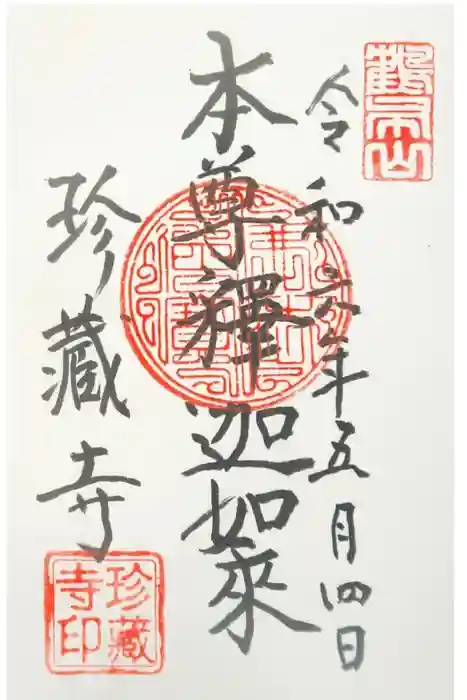 鶴布山
令和六年五月四日
本尊釋迦如來
珍藏寺
珍藏
寺印